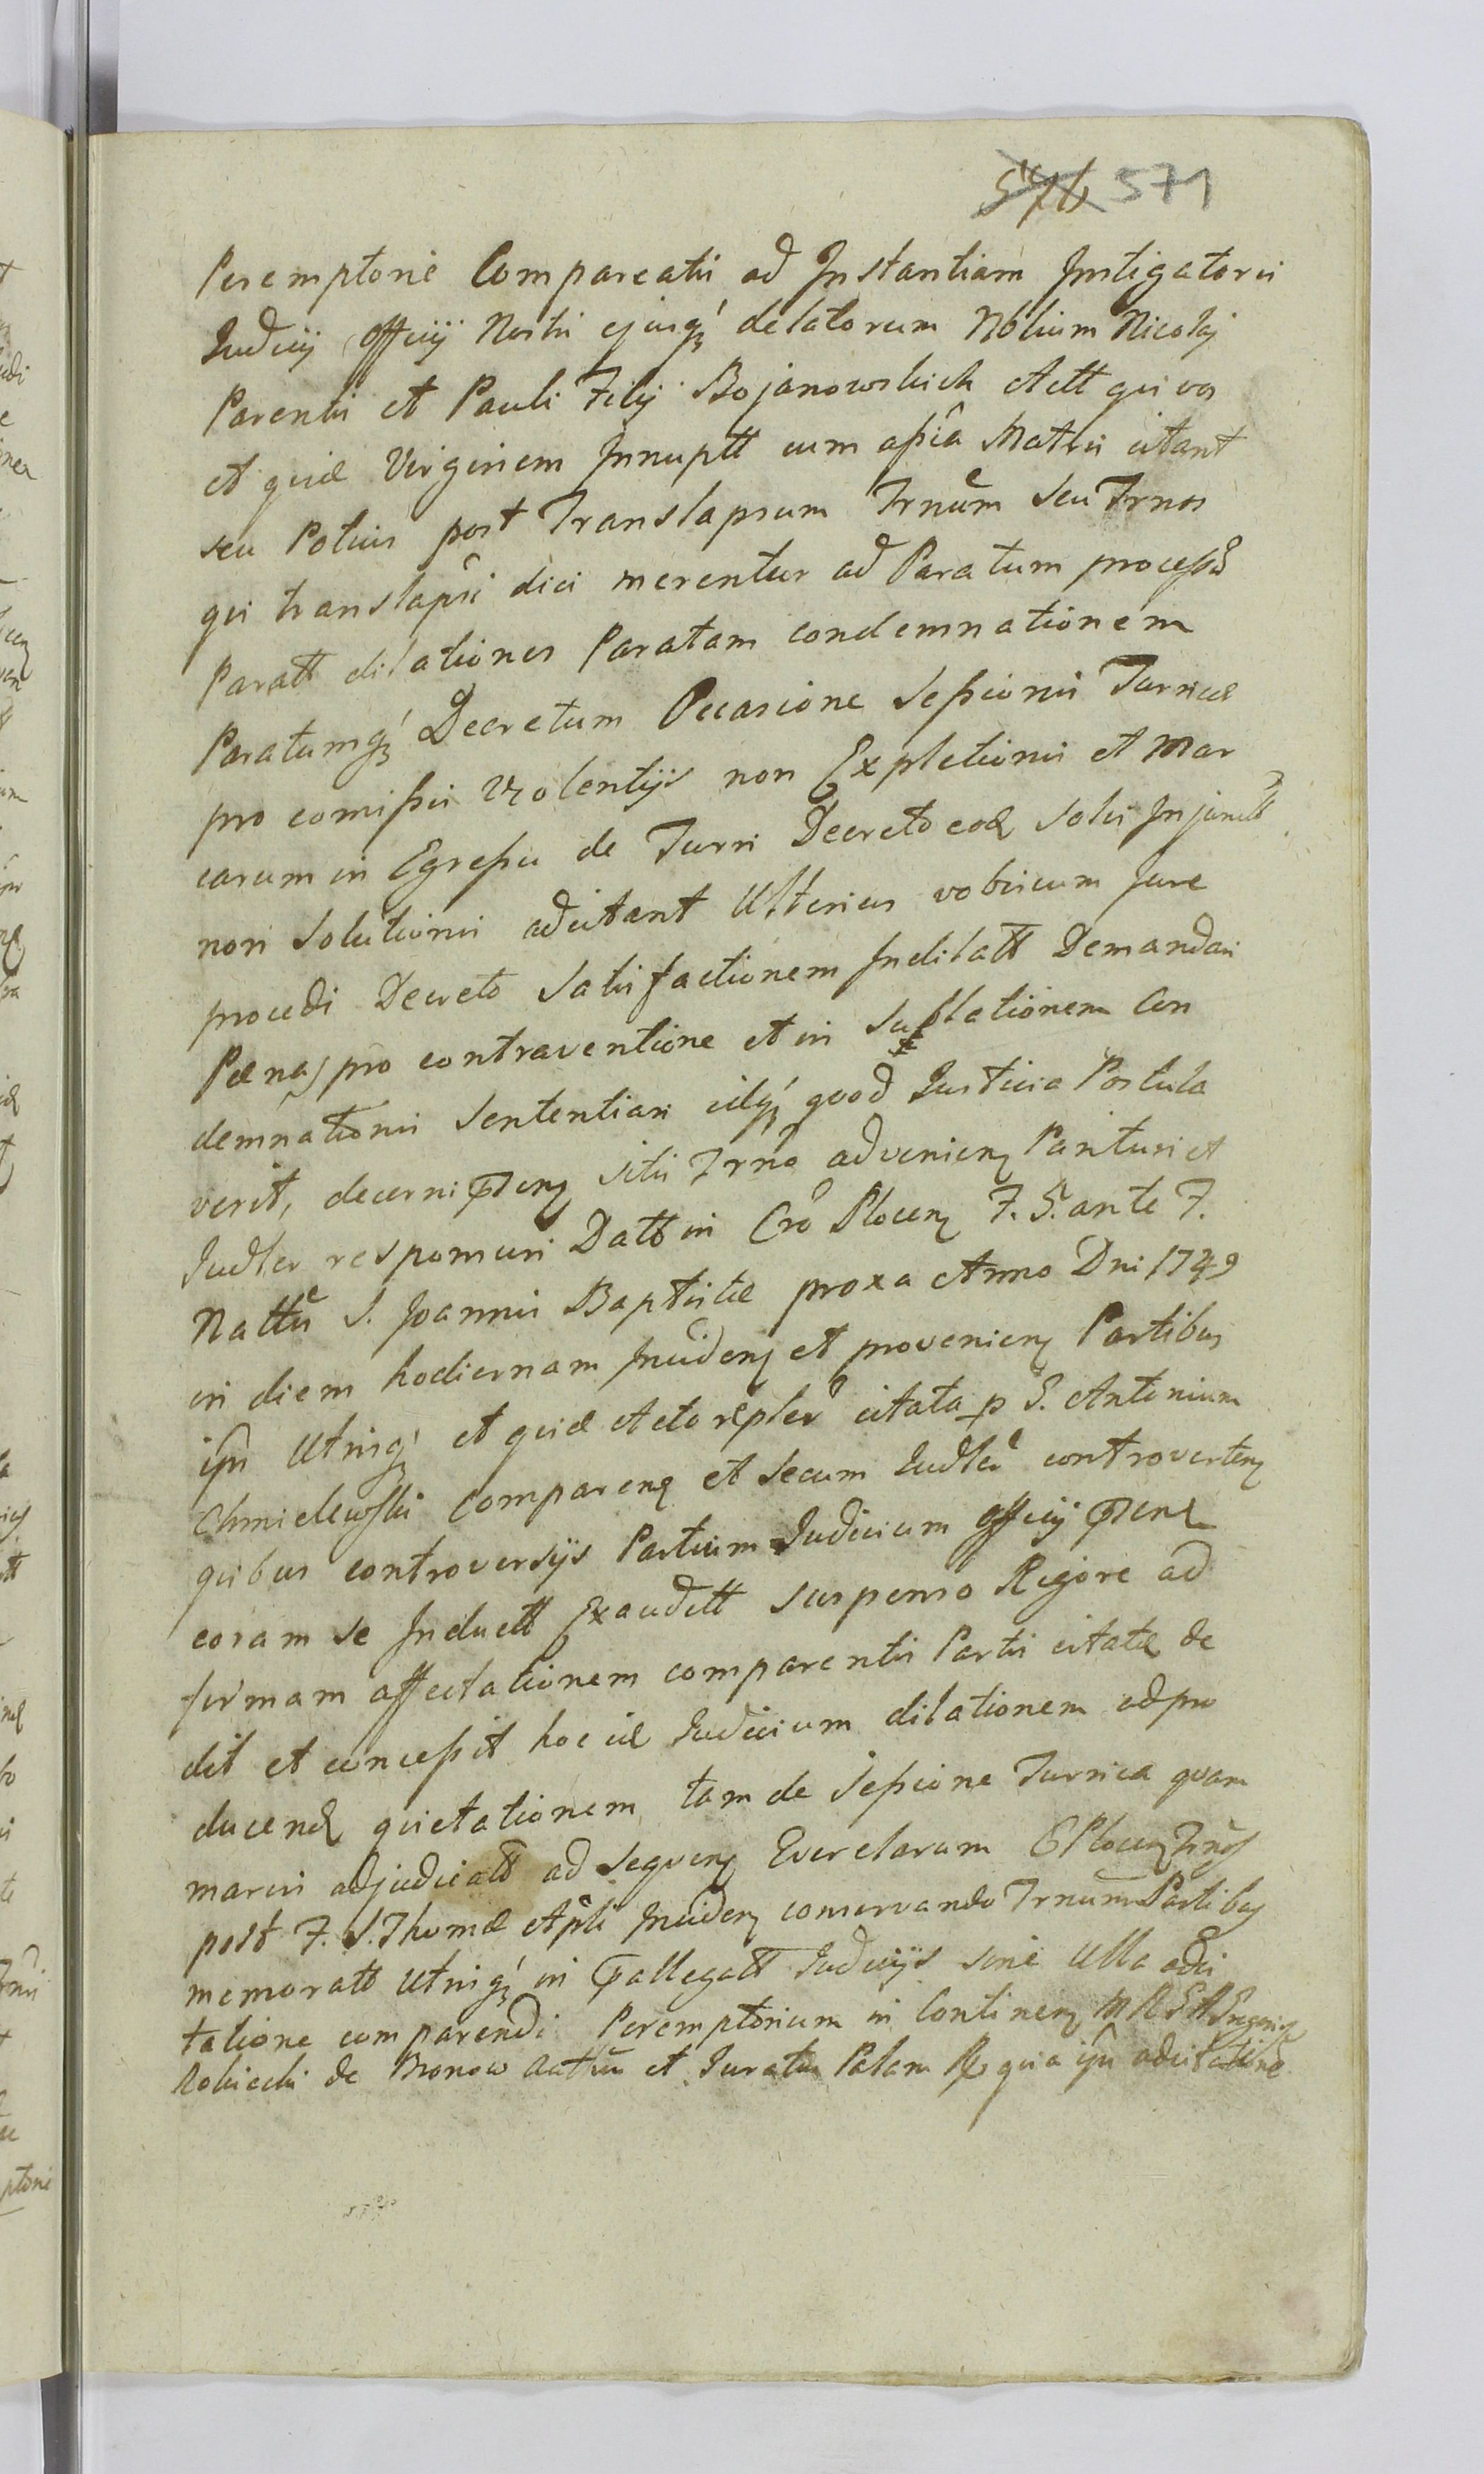 571
Peremptorie Compareatis ad Instantiam Instigatoris
Judicij officij Nostri ejusq́ delatorum Nobilium Nicolaj
Parentis et Pauli Filij Bojanowskich Actt qui vos
et quid Virginem Innuptt cum assia Matris citant
seu Potius post Translapsum Trnum seu Trnos
qui translapsi dici merentur ad Paratum processu
Paratt dilationes Paratam condemnationem
Paratumq́ Decretum Occasione Sessionis Turricae
pro comissis Violentijs non Expletionis et Mar
carum in Egressu de Turri Decreto eod solvi Injunctt
non Solutionis adcitant Ulterius vobiscum Jure
procedi Decreto Satisfactionem Indilatt Demandari
Paenas pro contraventione et in Suppletionem Con
demnationis Sententiari idq́ quod Justicia Postula
verit, decerni sitis Trno advenien Parituri et
Judler responsuri Datt in Cro Plocen F. S. ante F.
Nattis S. Joannis Baptistae proxa Anno Dni 1749
in diem hodiernam Inciden et provenien Partibus
ipsis Utrisq́ et quid Acto citata p G. Antonium
Chmielewski Comparen et secum Judler controverten
quibus controversijs Partium Judicium officij
coram se Inductt Exauditt suspenso Rigore ad
firmam affectationem comparentis Partis citatae de
dit et concessit hoc id Judicium dilationem ad pro
ducend quietationem tam de Sessione Turrica quam
marcis adjudicatt ad sequen Querelarum C Plocen Trnos
post F. S. Thomae Apli Inciden conservando Trnum Partibus
memoratt Utrisq́ in pallegatt Judicijs sine Ulla adci
tatione comparendi Peremptorium in Continen
de Bronow et Juratus Palam R quia ipsis adcitatione